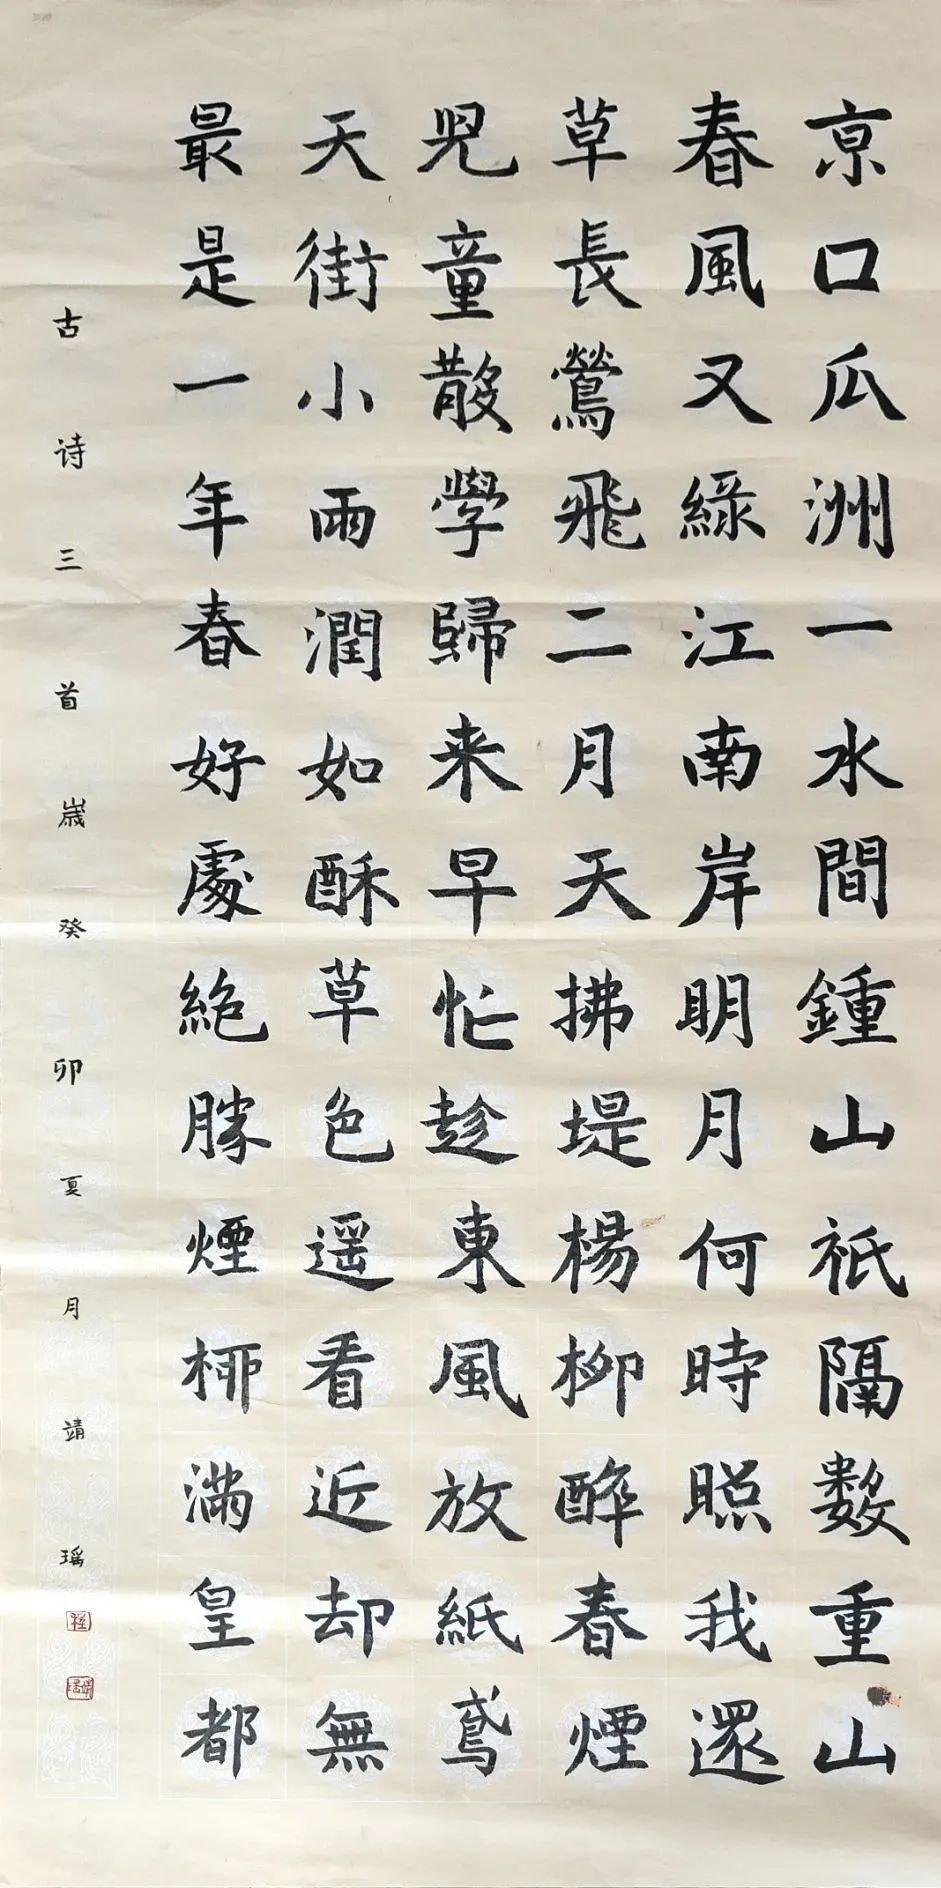 京口瓜洲一水間鍾山祇隔数重山
春風又綠江南岸明月何時照我還
草長鶯飛二月天拂堤楊柳醉春煙
兒童散學歸来早忙趁東風放紙鳶
天街小雨潤如酥草色遥看近却無
最是一年春好處絶勝煙柳滿皇都
古诗三首歲癸卯夏月靖瑶